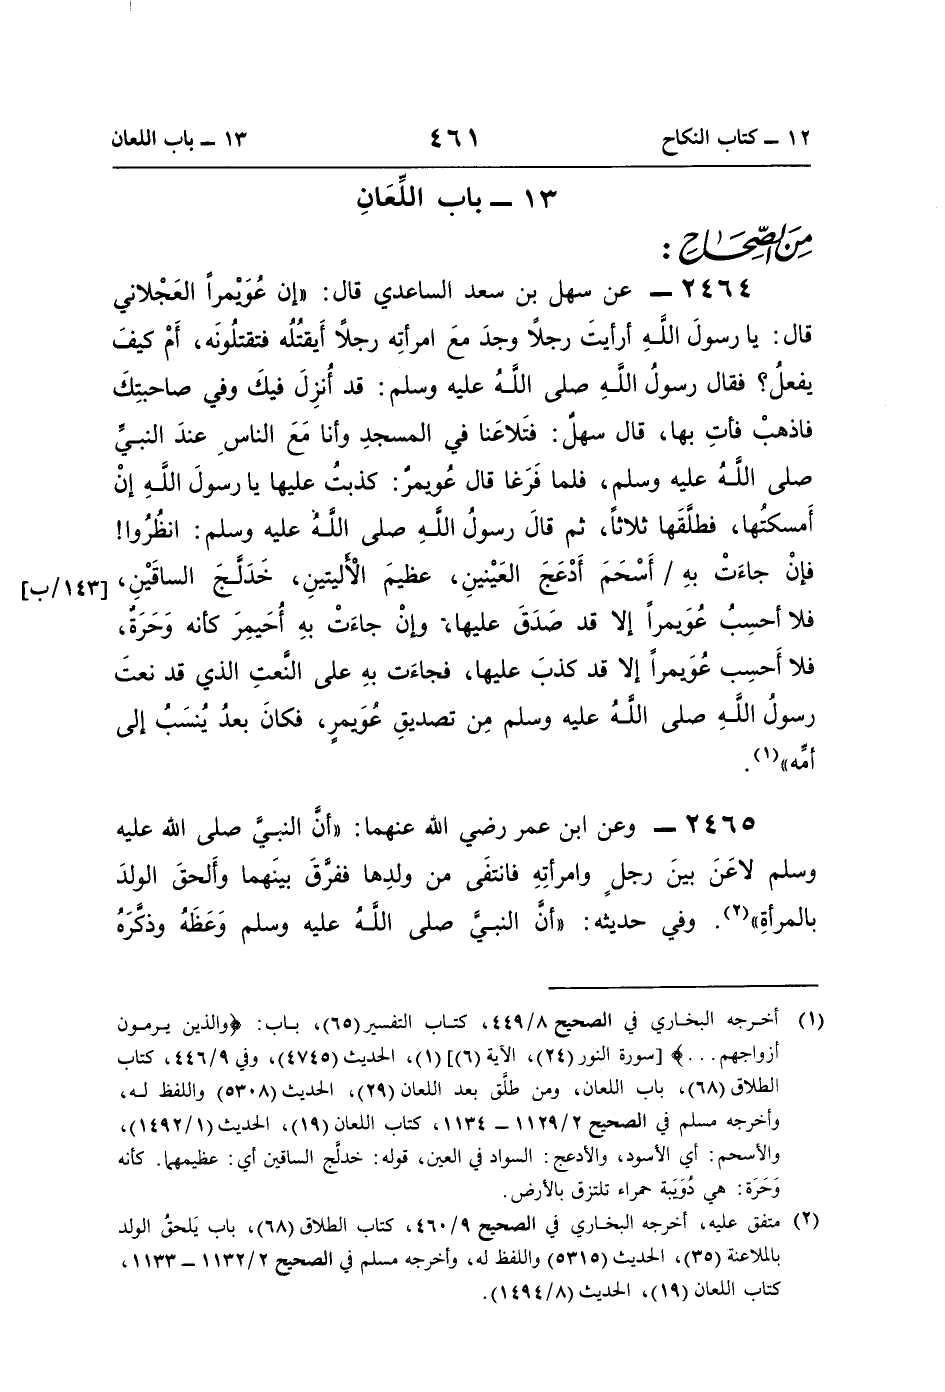 ١٢ ـ كتاب النكاح ٤٦١ ١٣ ـ باب اللعان
١٣ ـ باب اللِّعَانِ
مِنَ الصِّحَاحِ :
٢٤٦٤ ـ عن سهل بن سعد الساعدي قال: «إن عُوَيْمراً العَجْلاني
قال: يا رسولَ اللَّهِ أرأيتَ رجلاً وجدَ معَ امرأتِه رجلاً أَيقتُلُه فتقتلُونَه، أَمْ كيفَ
يفعلُ؟ فقال رسولُ اللَّهِ صلى اللَّهُ عليه وسلم: قد أُنزِلَ فيكَ وفي صاحبتِكَ
فاذهبْ فأتِ بها، قال سهلٌ: فتَلاعَنا في المسجدِ وأنا مَعَ الناسِ عندَ النبيِّ
صلى اللَّهُ عليه وسلم، فلما فَرَغا قال عُويمرٌ: كذبتُ عليها يا رسولَ اللَّهِ إنْ
أمسكتُها، فطلَّقَها ثلاثاً، ثم قالَ رسولُ اللَّهِ صلى اللَّهُ عليه وسلم: انظُرُوا!
فإنْ جاءَتْ بهِ / أَسْحَمَ أَدْعَجَ العَيْنينِ، عظيمَ الأَليتينِ، خَدَلَّجَ الساقَيْنِ، [١٤٣/ب]
فلا أحسِبُ عُوَيمراً إلا قد صَدَقَ عليها، وإنْ جاءَتْ بهِ أُحَيمِرَ كأنه وَحَرَةٌ،
فلا أَحسِب عُوَيمراً إلا قد كذبَ عليها، فجاءَت بهِ على النَّعتِ الذي قد نعتَ
رسولُ اللَّهِ صلى اللَّهُ عليه وسلم مِن تصديقِ عُوَيمرٍ، فكانَ بعدُ يُنسَبُ إلى
أمِّه»(١).
٢٤٦٥ ـ وعن ابن عمر رضي الله عنهما: «أنَّ النبيَّ صلى الله عليه
وسلم لاعَنَ بينَ رجلٍ وامرأتِهِ فانتفَى من ولدِها ففرَّقَ بينَهما وأَلحقَ الولدَ
بالمرأةِ»(٢). وفي حديثه: «أنَّ النبيَّ صلى اللَّهُ عليه وسلم وَعَظَهُ وذكَّرَهُ
(١) أخرجه البخاري في الصحيح ٤٤٩/٨، كتاب التفسير (٦٥)، باب: ﴿والذين يرمون
أزواجهم...﴾ [سورة النور (٢٤)، الآية (٦)] (١)، الحديث (٤٧٤٥)، وفي ٤٤٦/٩، كتاب
الطلاق (٦٨)، باب اللعان، ومن طلَّق بعد اللعان (٢٩)، الحديث (٥٣٠٨) واللفظ له،
وأخرجه مسلم في الصحيح ١١٢٩/٢ ـ ١١٣٤، كتاب اللعان (١٩)، الحديث (١٤٩٢/١)،
والأسحم: أي الأسود، والأدعج: السواد في العين، قوله: خدلَّج الساقين أي: عظيمهما. كأنه
وَحَرَة: هي دُوَيبة حمراء تلتزق بالأرض.
(٢) متفق عليه، أخرجه البخاري في الصحيح ٤٦٠/٩، كتاب الطلاق (٦٨)، باب يَلحقُ الولد
بالملاعنة (٣٥)، الحديث (٥٣١٥) واللفظ له، وأخرجه مسلم في الصحيح ١١٣٢/٢ ـ ١١٣٣،
كتاب اللعان (١٩)، الحديث (١٤٩٤/٨).